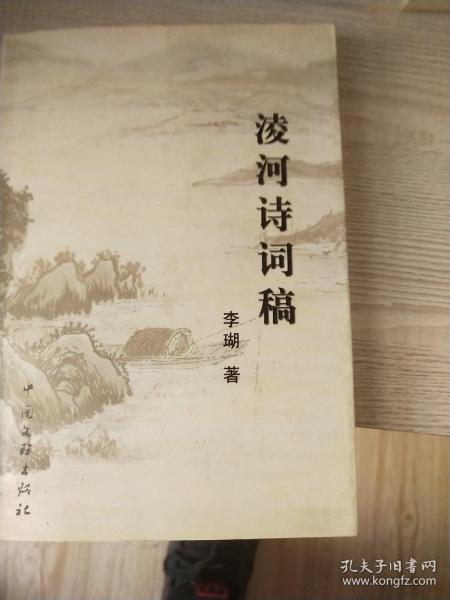 淩河诗词稿
李瑚 著
中国文联出版社
孔夫子旧书网
www.kongfz.com